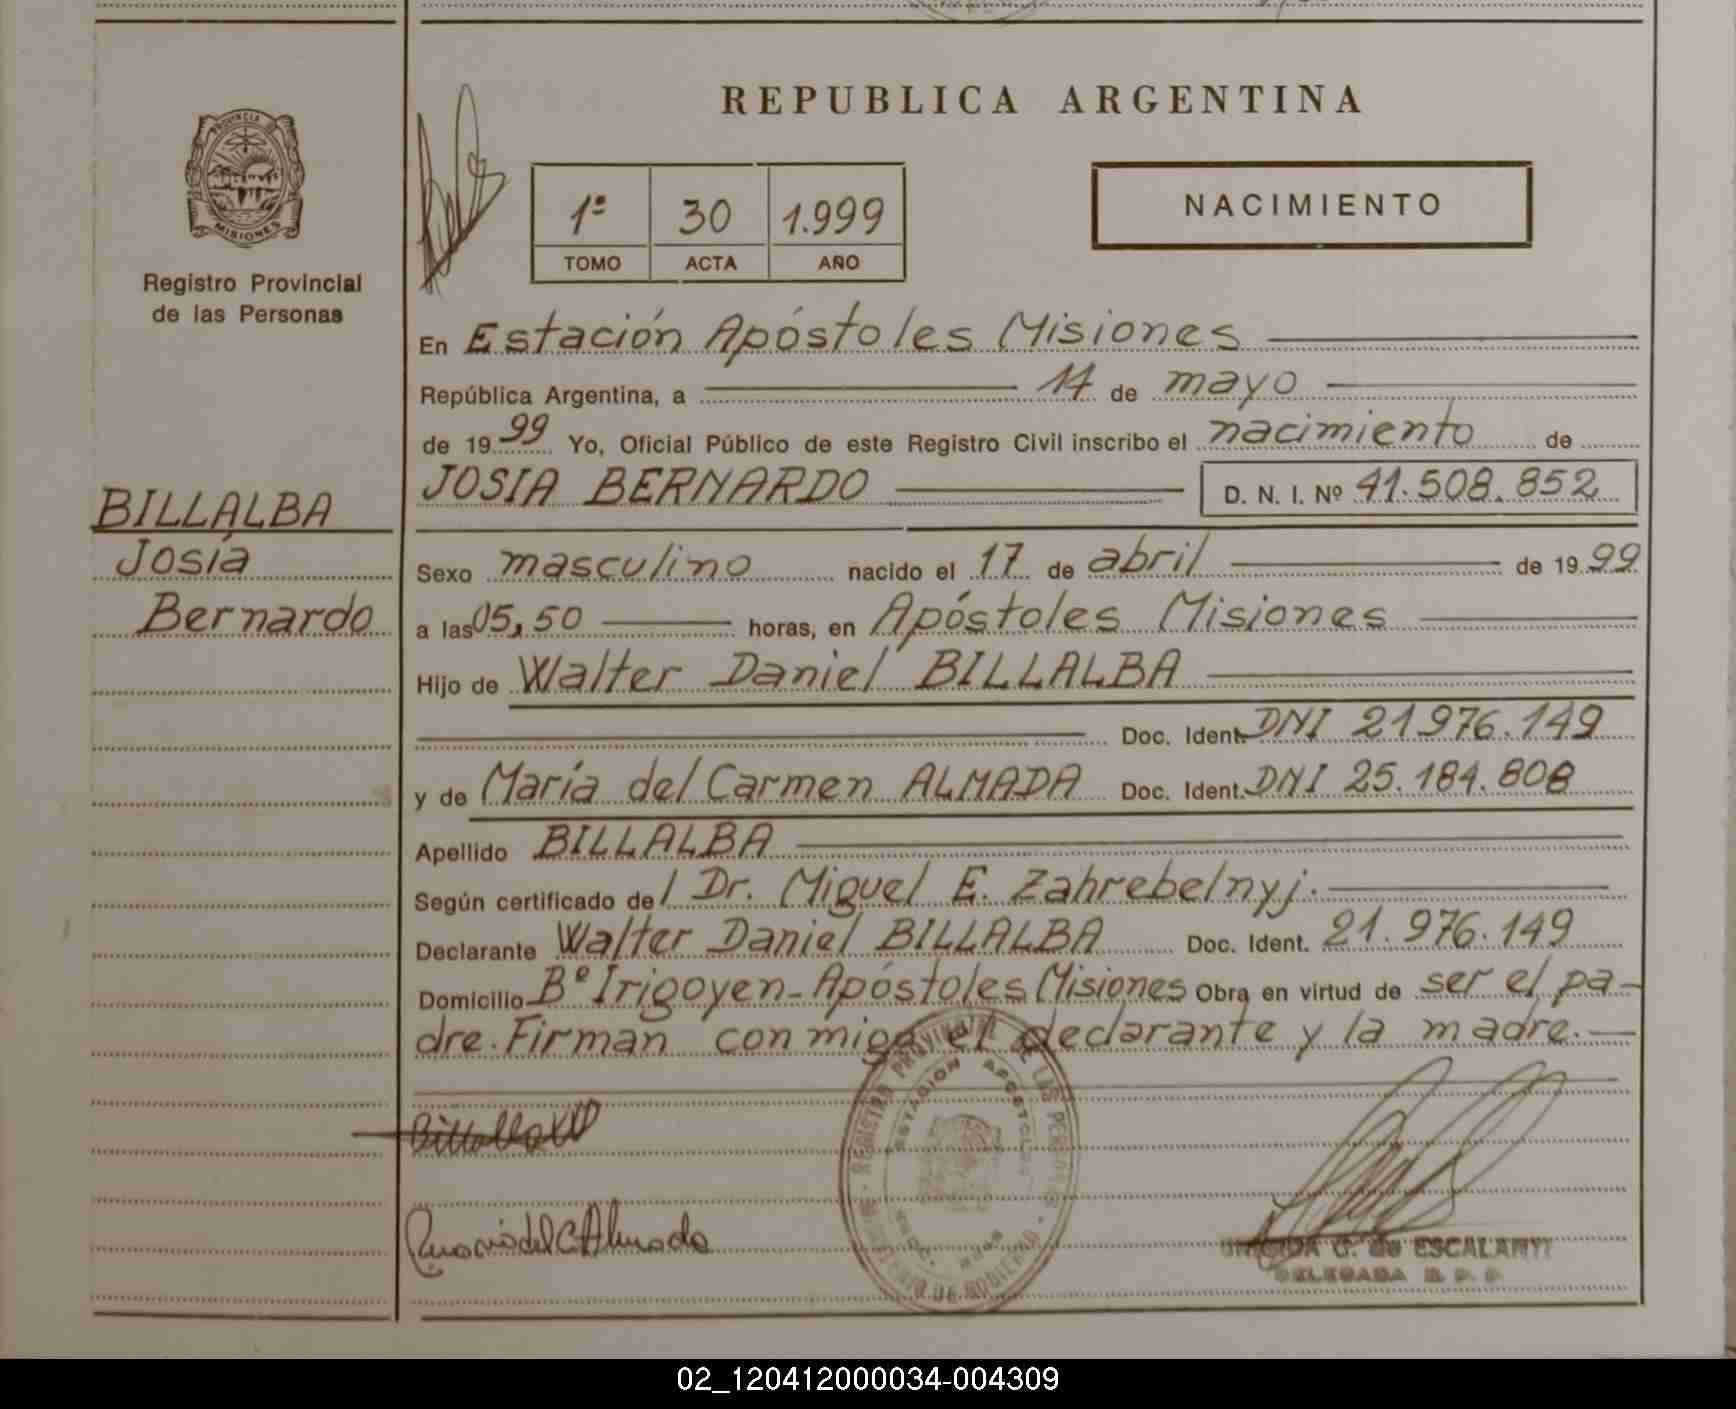 REPUBLICA ARGENTINA
PROVINCIA DE
MISIONES
Registro Provincial
de las Personas
1º 30 1.999
TOMO ACTA AÑO
NACIMIENTO
En Estación Apóstoles Misiones
República Argentina, a 14 de mayo
de 1999 Yo, Oficial Público de este Registro Civil inscribo el nacimiento de
JOSIA BERNARDO D. N. I. Nº 41.508.852
BILLALBA
Josía
Bernardo
Sexo masculino nacido el 17 de abril de 1999
a las 05,50 horas, en Apóstoles Misiones
Hijo de Walter Daniel BILLALBA
Doc. Ident. DNI 21.976.149
y de María del Carmen ALMADA Doc. Ident. DNI 25.184.808
Apellido BILLALBA
Según certificado del Dr. Miguel E. Zahrebelnyj.
Declarante Walter Daniel BILLALBA Doc. Ident. 21.976.149
Domicilio Bº Irigoyen - Apóstoles Misiones Obra en virtud de ser el pa-
dre. Firman conmigo el declarante y la madre.
REGISTRO PROVINCIAL DE LAS PERSONAS
ESTACION APOSTOLES
DE GOBIERNO
María del C Almada
G. de ESCALANTE
DELEGADA R. P. P.
02_120412000034-004309